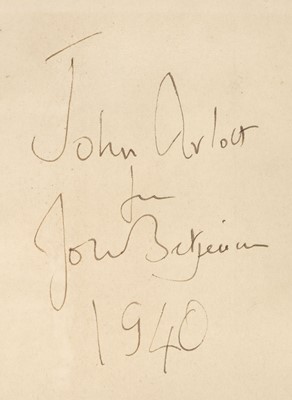 John Arlott
fr
John Betjeman
1940